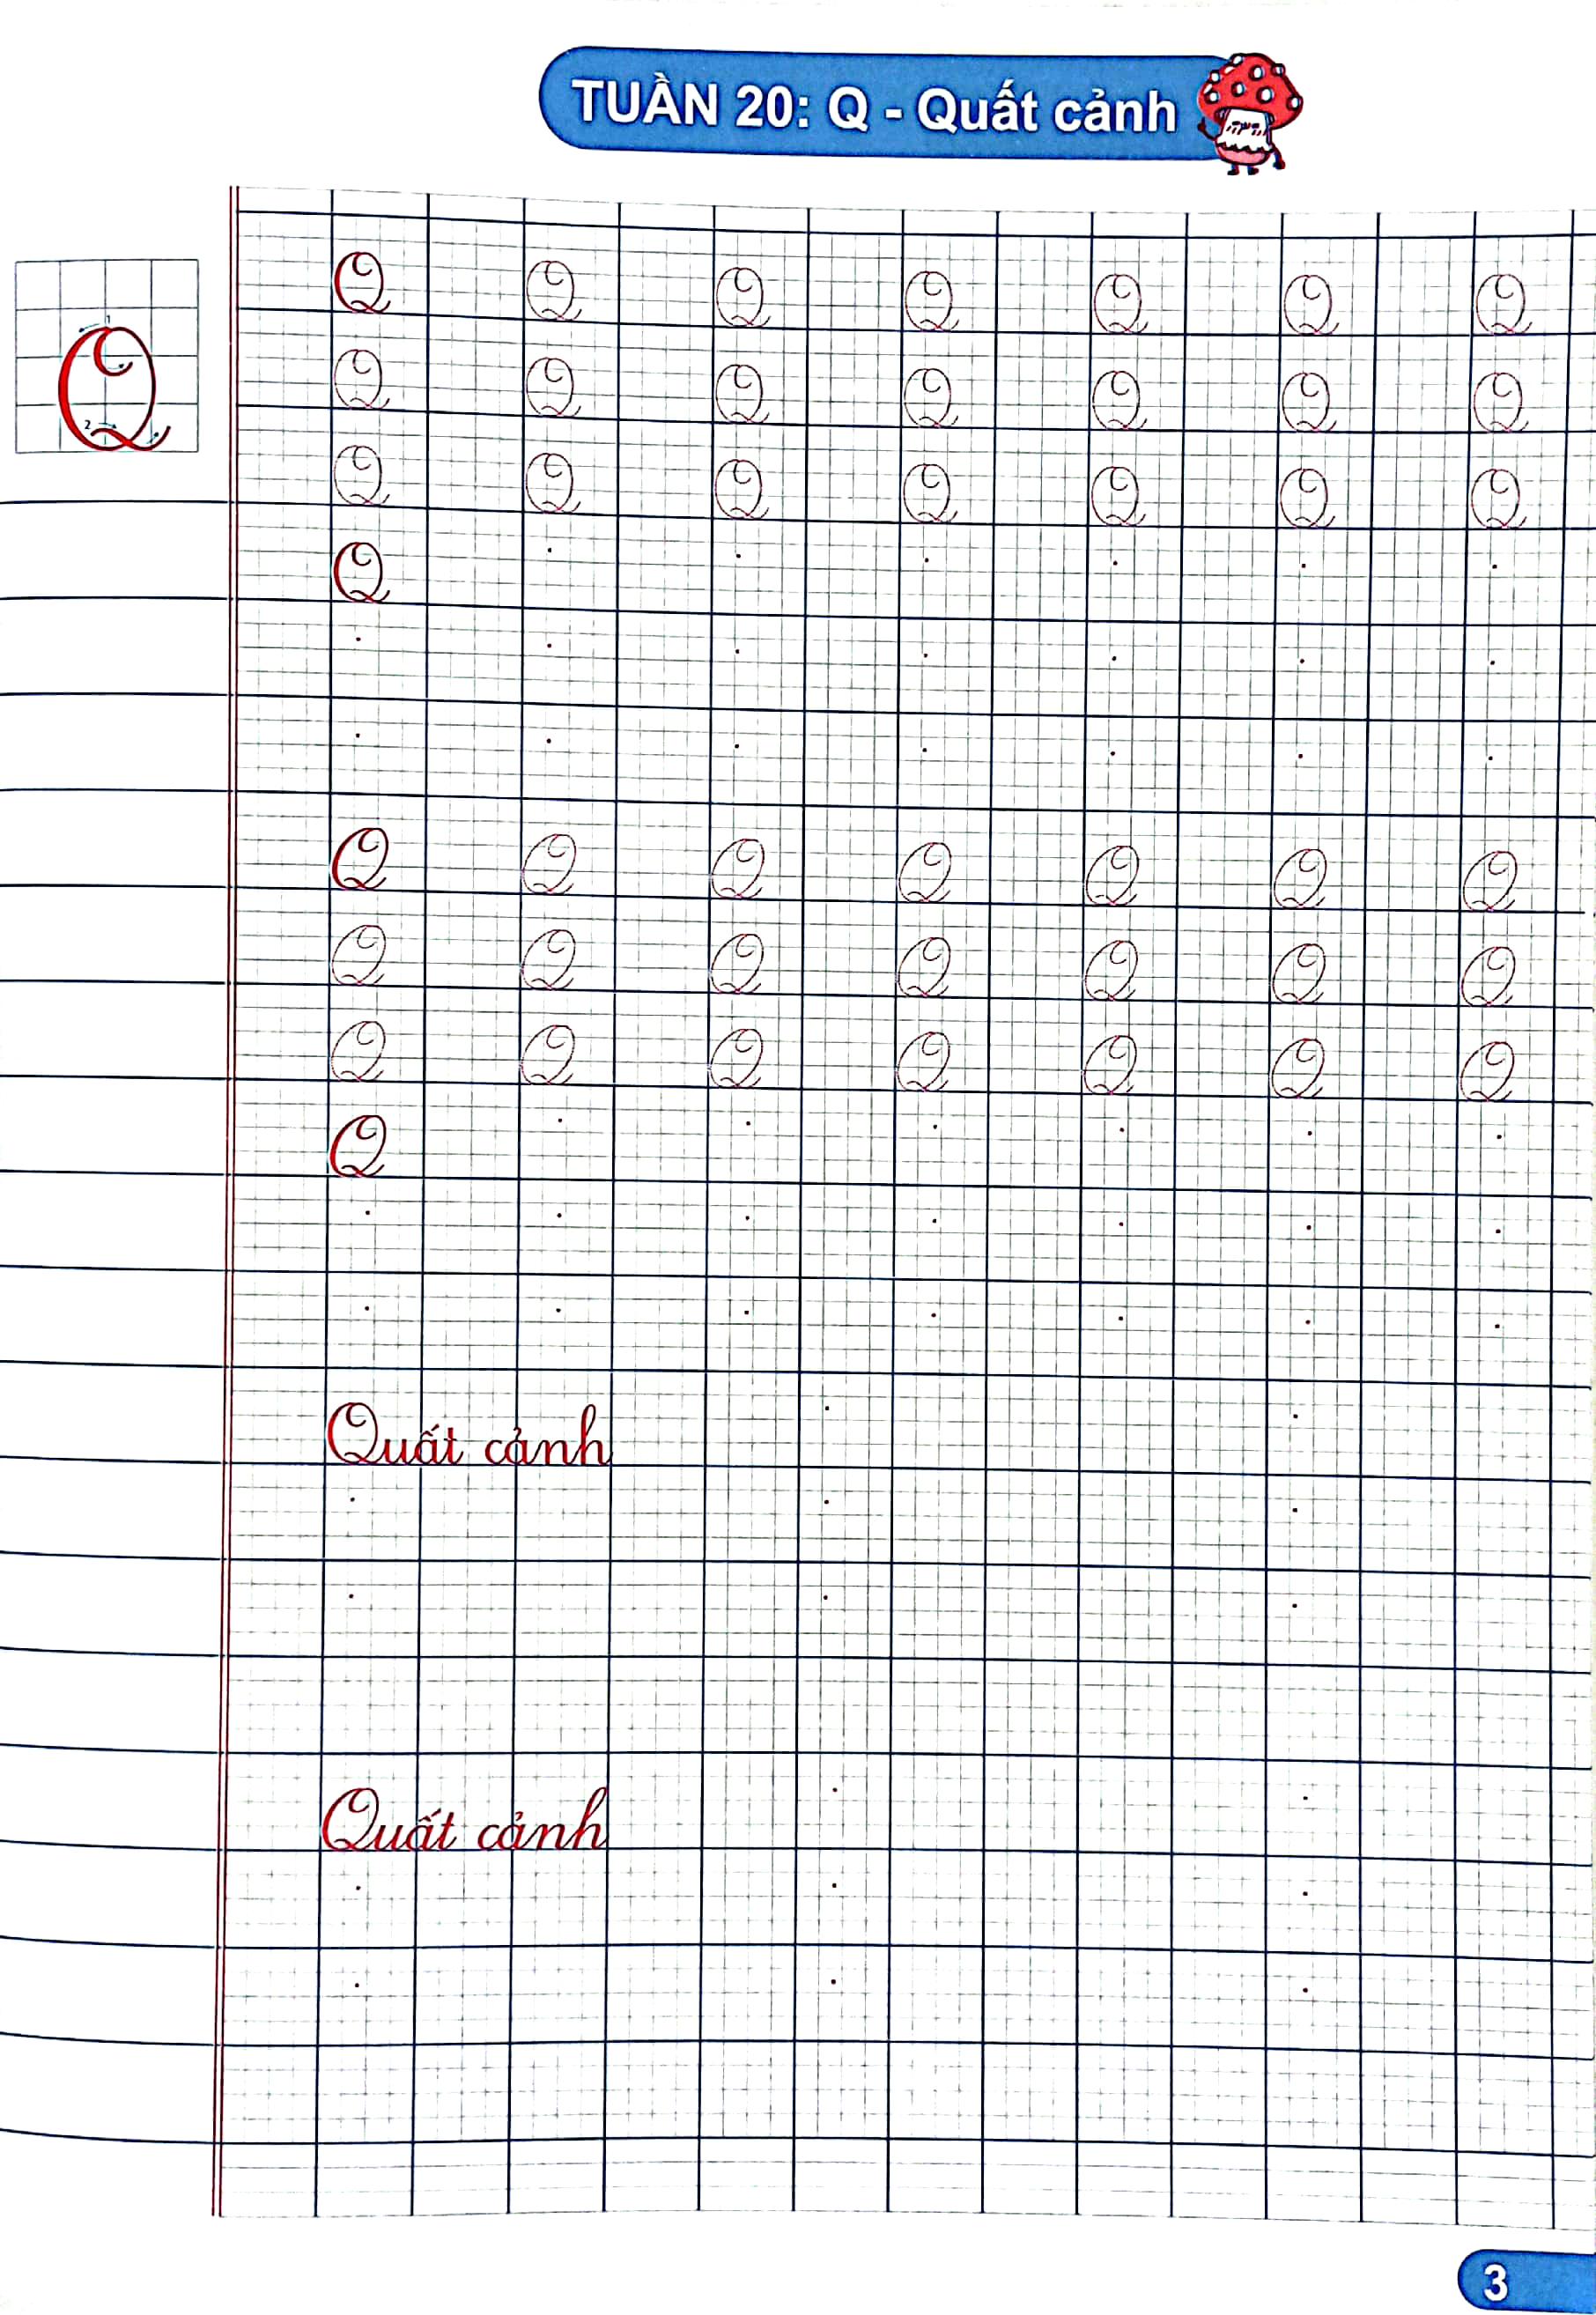 TUẦN 20: Q - Quất cảnh
1
2
Q Q Q Q Q Q Q
Q Q Q Q Q Q Q
Q Q Q Q Q Q Q
Q
Q Q Q Q Q Q Q
Q Q Q Q Q Q Q
Q Q Q Q Q Q Q
Q
Quất cảnh
Quất cảnh
3